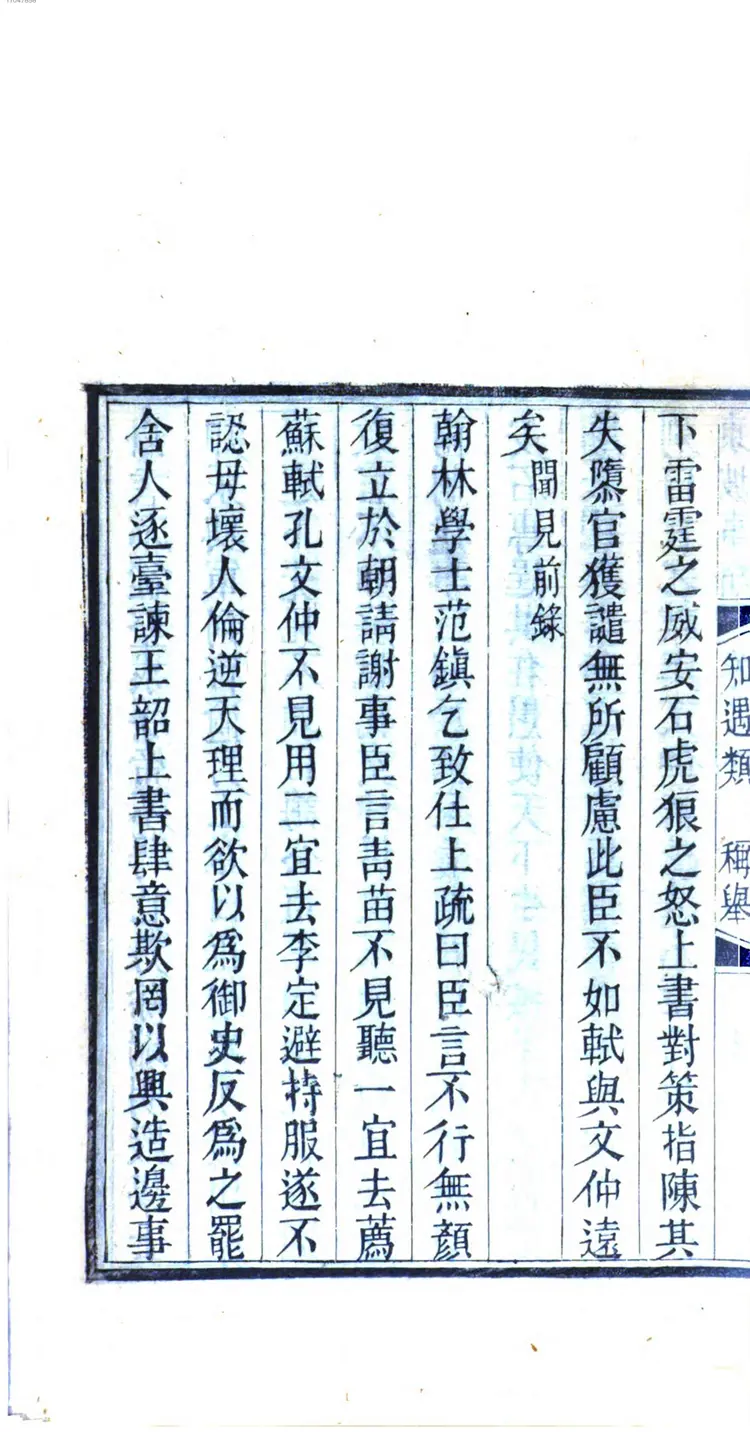 知遇類 稱舉
下雷霆之威安石虎狼之怒上書對策指陳其
失隳官獲譴無所顧慮此臣不如軾與文仲遠
矣聞見前錄
翰林學士范鎮乞致仕上疏曰臣言不行無顏
復立於朝請謝事臣言青苗不見聽一宜去薦
蘇軾孔文仲不見用二宜去李定避持服遂不
認母壞人倫逆天理而欲以爲御史反爲之罷
舍人逐臺諫王韶上書肆意欺罔以興造邊事